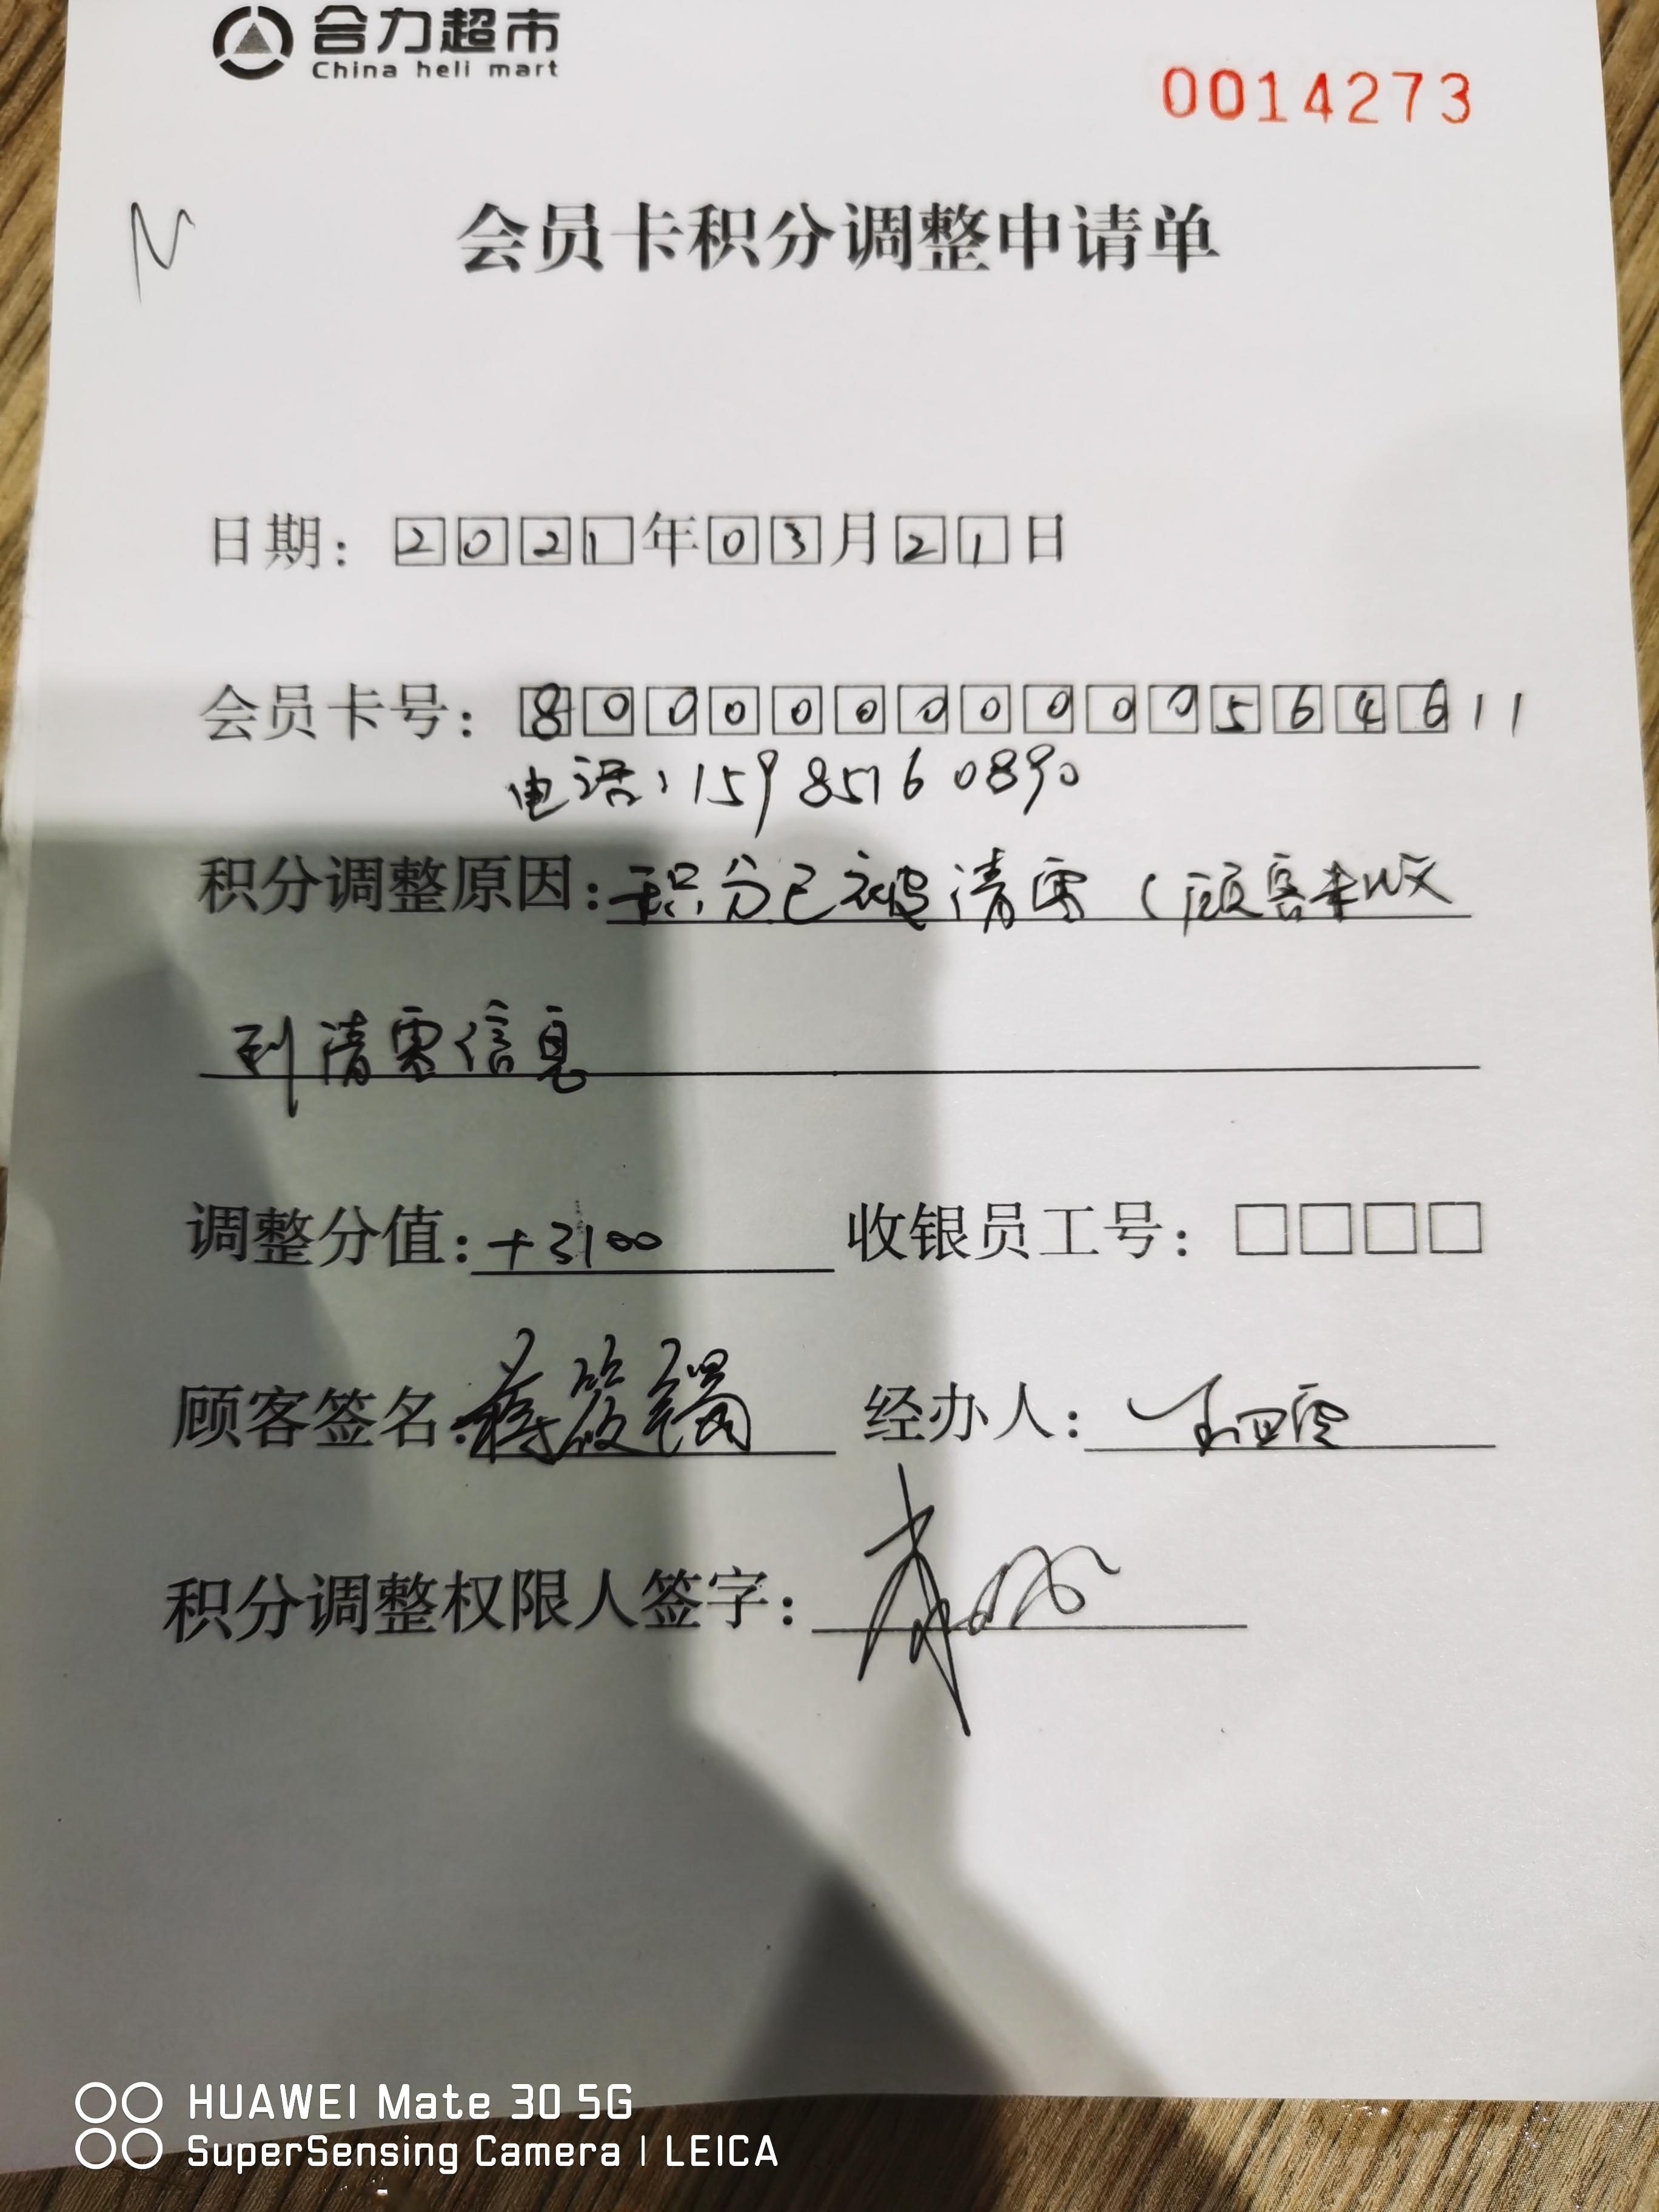 合力超市
China heli mart
0014273
N
会员卡积分调整申请单
日期：2021年03月21日
会员卡号：80000000000564611
电话：15985160890
积分调整原因：积分已被清零（顾客未收
到清零信息
调整分值：+3100 收银员工号：□□□□
顾客签名： 经办人：
积分调整权限人签字：
HUAWEI Mate 30 5G
SuperSensing Camera | LEICA